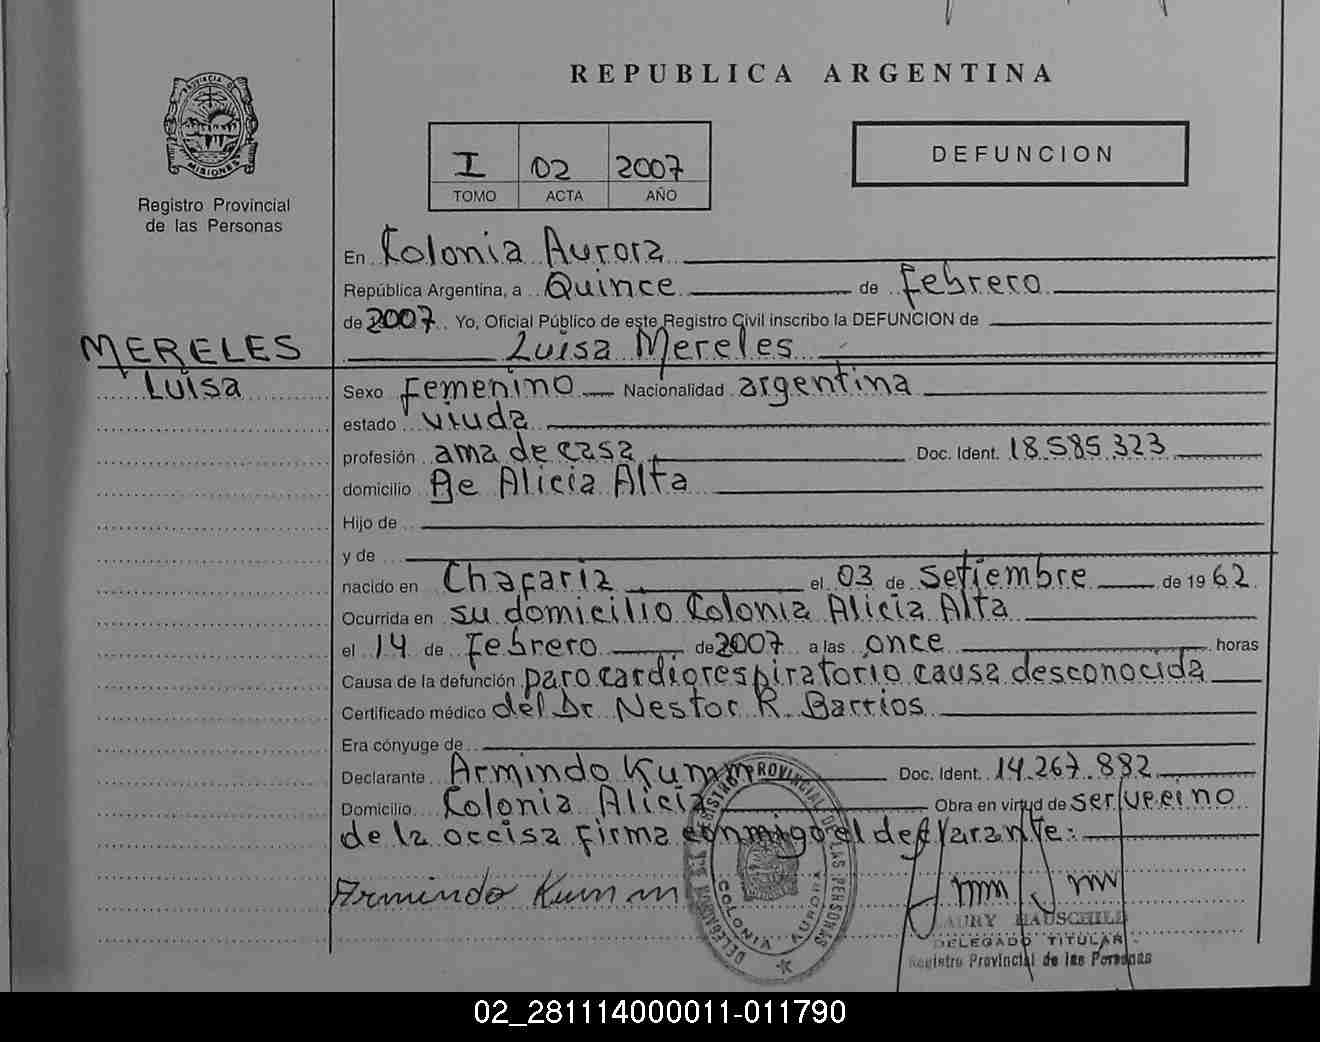 REPUBLICA ARGENTINA
PROVINCIA DE
MISIONES
Registro Provincial
de las Personas
I 02 2007
TOMO ACTA AÑO
DEFUNCION
En Colonia Aurora
República Argentina, a Quince de Febrero
de 2007. Yo, Oficial Público de este Registro Civil inscribo la DEFUNCION de
MERELES
Luisa Mereles
Luisa
Sexo Femenino Nacionalidad argentina
estado viuda
profesión ama de casa Doc. Ident. 18.585.323
domicilio Pje Alicia Alta
Hijo de
y de
nacido en Chafariz el 03 de Setiembre de 1962.
Ocurrida en su domicilio Colonia Alicia Alta
el 14 de Febrero de 2007 a las once horas
Causa de la defunción paro cardiorespiratorio causa desconocida
Certificado médico del Dr Nestor R. Barrios
Era cónyuge de
Declarante Armindo Kumm Doc. Ident. 14.267.882
Domicilio Colonia Alicia Obra en virtud de ser veeino
de la occisa firma conmigo el declarante:
Armindo Kumm
DELEGACION REGISTRO PROVINCIAL DE LAS PERSONAS
COLONIA AURORA
LAURY HAUSCHILD
DELEGADO TITULAR
Registro Provincial de las Personas
02_281114000011-011790